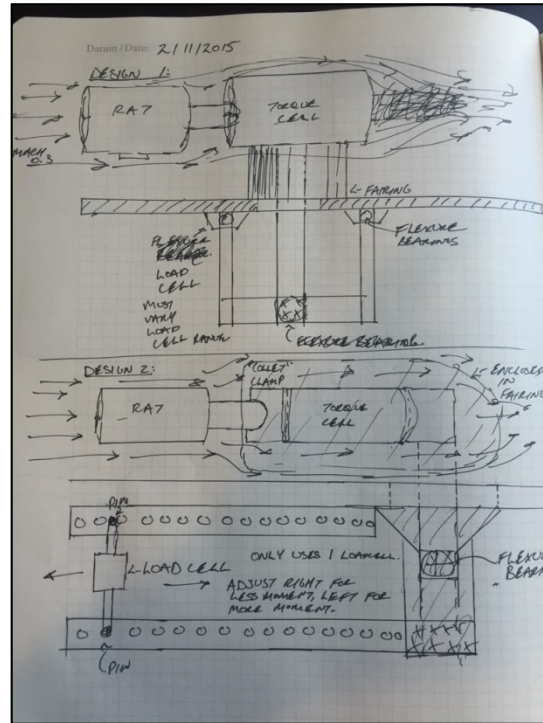 Datum / Date: 21/11/2015
DESIGN 1:
RAT
TORQUE
CELL
MACH
0.3
<- FAIRING
FLEXURE
BEARINGS
FLEXURE
LOAD
CELL
MUST
VARY
LOAD
CELL RANGE
FLEXURE BEARING.
DESIGN 2:
"COLLET"
CLAMP
<- ENCLOSED
IN
FAIRING
RAT
TORQUE
CELL
PIN
ONLY USES 1 LOADCELL.
<- LOAD CELL
ADJUST RIGHT FOR
LESS MOMENT, LEFT FOR
MORE MOMENT.
FLEXU
BEAR
PIN